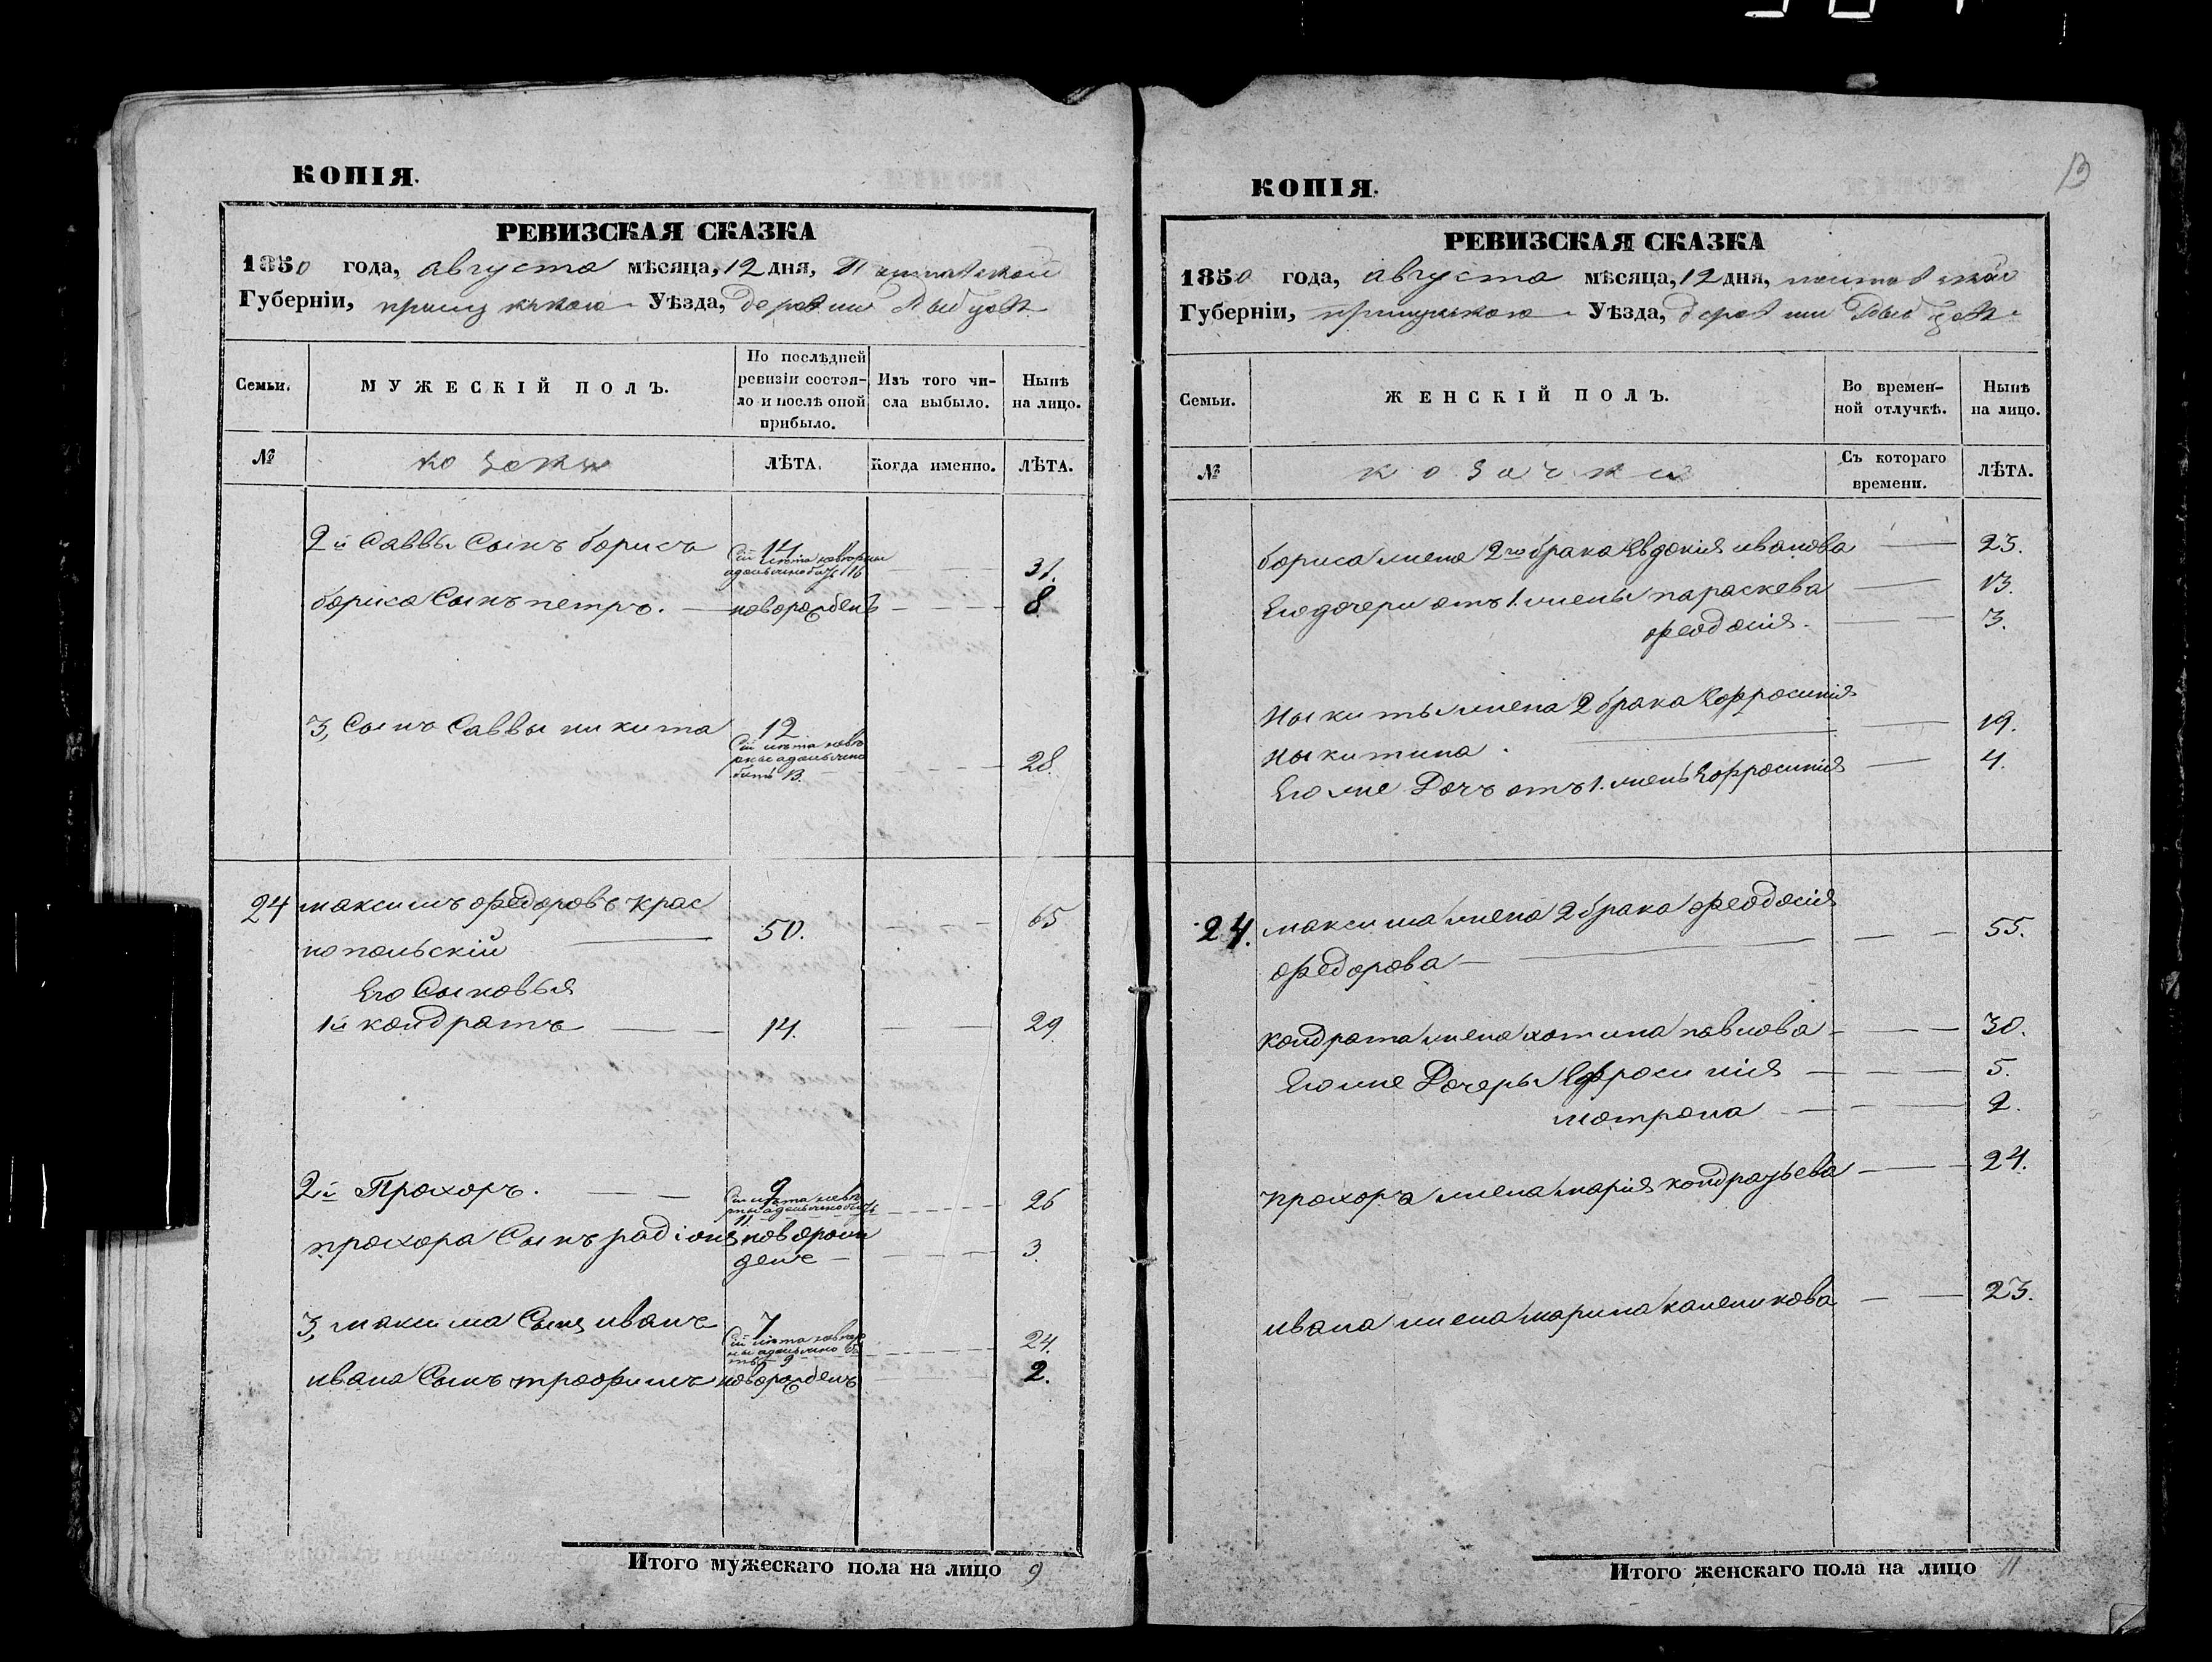 КОПІЯ.
РЕВИЗСКАЯ СКАЗКА
1850 года, августа мѣсяца, 12 дня, Полтавской
Губерніи, прилуцкаго Уѣзда, деревни Рыбцовъ
Семьи.
МУЖЕСКІЙ ПОЛЪ.
По послѣдней ревизіи состоя-
ло и послѣ оной прибыло.
Изъ того чи-
сла выбыло.
Нынѣ
на лицо.
№
козаки
ЛѢТА.
Когда именно.
ЛѢТА.
2й Саввы Сынъ борисъ 14 31.
бориса Сынъ петръ. новорожденъ 8
3, Сынъ Саввы никита 12 28.
24 максимъ федоровъ крас
нопольскій 50. 65
Его Сыновья
1й кондратъ 14. 29
2й Прохоръ. 9 26
11.
прохора Сынъ радіонъ новорож
денъ 3
3, максима Сынъ иванъ 7 24.
ивана Сынъ трофимъ новорожденъ 2.
Итого мужескаго пола на лицо 9
КОПІЯ.
13
РЕВИЗСКАЯ СКАЗКА
1850 года, августа мѣсяца, 12 дня, полтавской
Губерніи, прилуцкаго Уѣзда, деревни Рыбцовъ
Семьи.
ЖЕНСКІЙ ПОЛЪ.
Во времен-
ной отлучкѣ.
Нынѣ
на лицо.
№
козачки
Съ котораго
времени.
ЛѢТА.
бориса жена 2го брака Евдокія иванова 25.
Его дочери отъ 1. жены параскева 13.
феодосія. 3.
Ныкиты жена 2 брака Ефросинія
Ныкитина 19.
Его же Дочъ отъ 1. жены Ефросинія 4.
24. максима жена 2 брака феодосія
федорова 55.
кондрата жена хотина павлова 30.
Его же Дочеры Ефросинія 5.
мотрона 2.
прохора жена марія кондратьева 24.
ивана жена марина 23.
Итого женскаго пола на лицо 11